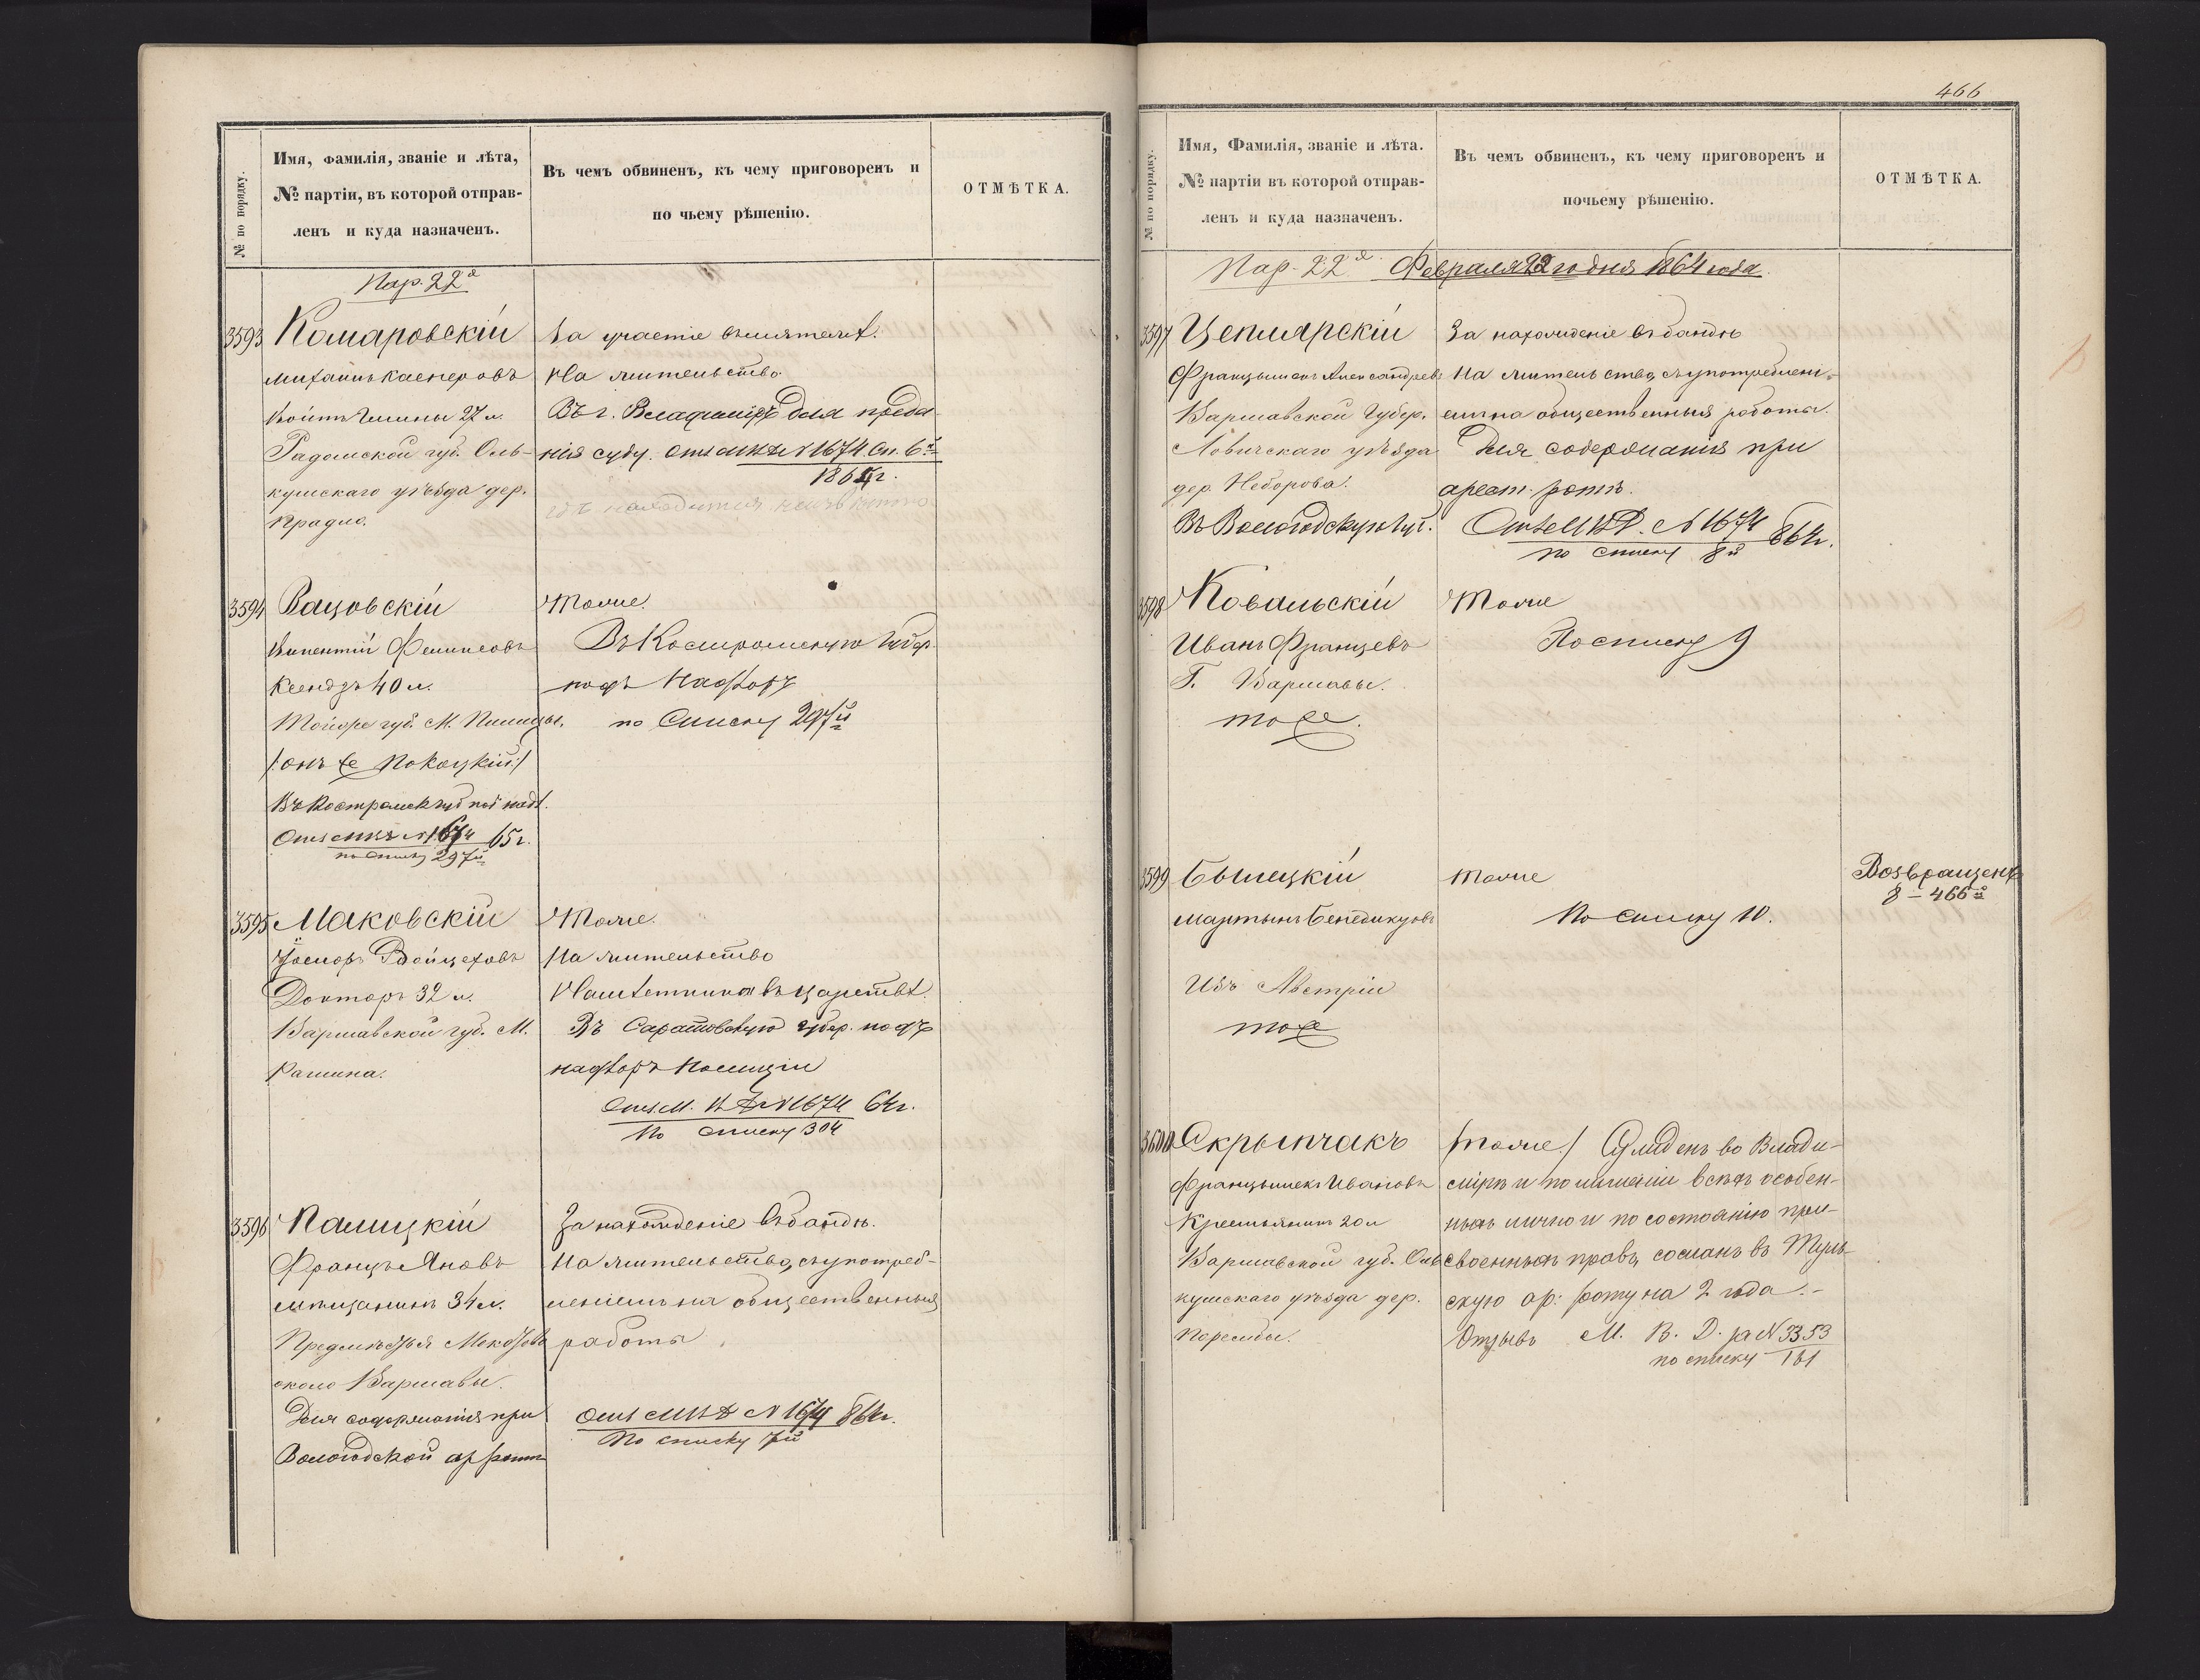 № по порядку.
Имя, фамилія, званіе и лѣта,
№ партіи, въ которой отправ-
ленъ и куда назначенъ.
Въ чемъ обвиненъ, къ чему приговоренъ и
по чьему рѣшенію.
ОТМѢТКА.
Пар. 22я
3593 Комаровскій
Михаилъ Касперовъ
Войтъ Гмины 27 л.
Радомской губ. Оль-
кушскаго уѣзда дер.
За участіе въ мятежѣ.
На жительство.
Въ г. Владиміръ для преда-
нія суду. Отз МВД № 1674 Сп. 6й
1864 г.
гдѣ находится неизвѣстно
3594 Рацовскій
Викентій Феликсовъ
Ксендзъ 40 л.
Тойже губ. М. Пилицы.
/онъ же Покоцкій/
Въ Костромск губ под надз.
Отз МВД № 1674 65 г.
по списку 297й
Тоже.
Въ Костромскую Губер.
подъ Надзоръ
по Списку 297й
3595 Маковскій
Іосифъ Войцеховъ
Докторъ 32 л.
Варшавской губ. М.
Рашина.
Тоже.
На жительство
Въ Саратовскую губер. подъ
надзоръ Полиціи
Отз М. В Д № 1674 64 г.
По списку 304
3596 Палицкій
Францъ Яновъ
мѣщанинъ 34 л.
Предмѣстья Мокотова
около Варшавы.
Для содержанія при
Вологодской ар ротѣ
За нахожденіе въ бандѣ.
На жительство, съ употреб-
леніемъ на общественныя
работы.
Отз МВД № 1674 864 г.
По списку 7й
466
№ по порядку.
Имя, Фамилія, званіе и лѣта.
№ партіи въ которой отправ-
ленъ и куда назначенъ.
Въ чемъ обвиненъ, къ чему приговоренъ и
почьему рѣшенію.
ОТМѢТКА.
Пар. 22я Февраля 22го дня 1864 года.
3597 Цеплярскій
Францышекъ Александровъ
Варшавской Губер.
Ловичскаго уѣзда
дер. Неборова.
Въ Вологодскую губ.
За нахожденіе въ бандѣ
На жительство, съ употреблені-
емъ на общественныя работы.
Для содержанія при
арест. ротѣ.
Отз М В Д. № 1674 864 г.
по списку 8й
3598 Ковальскій
Иванъ Францевъ
Г. Варшавы.
тоже.
Тоже
По списку 9
3599 Былецкій
Мартынъ Бенедиктовъ
Изъ Австріи
тоже
Тоже
По списку 10.
Возвращенъ
8 – 466й
3600 Скрыпчакъ
Францышекъ Ивановъ
Крестьянинъ 20 л
Варшавской губ. Оль
кушскаго уѣзда дер.
Порембы.
/тоже/ Сужденъ во Влади-
мірѣ и по лишеніи всѣхъ особен-
ныхъ лично и по состоянію при-
своенныхъ правъ, сосланъ въ Туль-
скую ар: роту на 2 года.-
Отзывъ М. В. Д. за № 3353
по списку 161